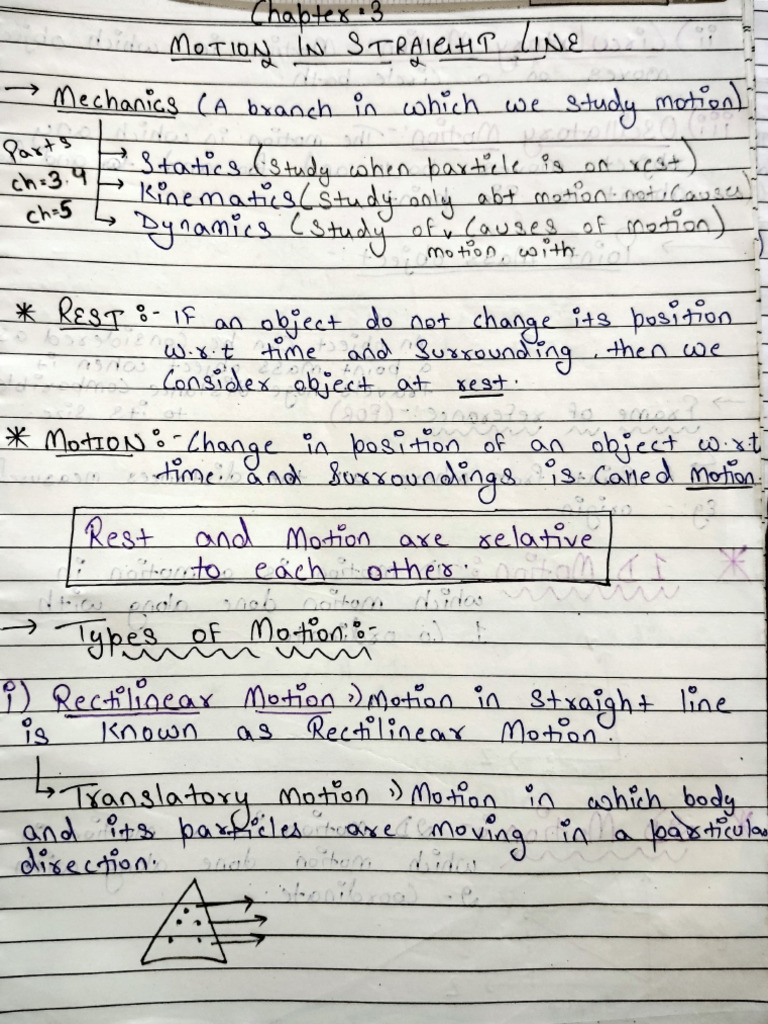 Chapter:3
MOTION IN STRAIGHT LINE
→ Mechanics (A branch in which we study motion)
Parts
→ Statics (Study when particle is on rest)
ch=3.4 → Kinematics (Study only abt motion not causes)
ch=5 → Dynamics (Study of ᵥ causes of motion)
motion with
* REST :- IF an object do not change its position
w.r.t time and surrounding, then we
consider object at rest.
* MOTION :- Change in position of an object w.r.t
time and surroundings is called motion.
Rest and Motion are relative
to each other.
→ Types of Motion :-
i) Rectilinear Motion :) Motion in straight line
is known as Rectilinear Motion.
↳ Translatory motion :) Motion in which body
and its particles are moving in a particular
direction.